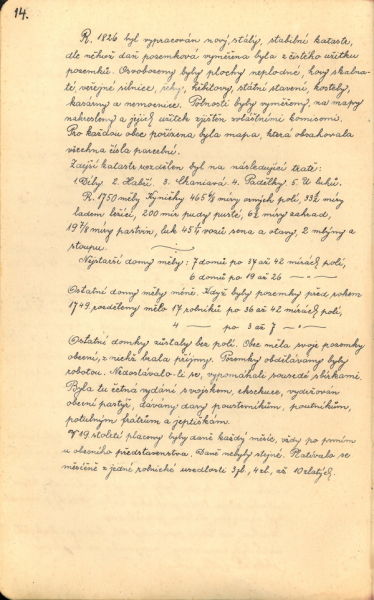 14.
R. 1826 byl vypracován nový stálý, stabilní kataster,
dle něhož daň pozemková vyměřena byla z čistého užitku
pozemků. Osvobozeny byly plochy neplodné, kovy skalna-
té, veřejné silnice, řeky, hřbitovy, státní stavení, kostely,
kasárny a nemocnice. Polnosti byly vyměřeny, na mapy
nakresleny a jejich užitek zjištěn zvláštními komisemi.
Pro každou obec pořízena byla mapa, která obsahovala
všechna čísla parcelní.
Zdejší kataster rozdělen byl na následující tratě:
1. Díly 2. Habří. 3. Chaniavá. 4. Padělky. 5. U luhů.
R. 1750 měly Kyničky 465 6/8 míry orných polí, 33 míry
ladem ležící, 200 mír pudy pusté, 6 míry zahrad,
19 7/8 míry pastvin, luk 45 vozů sena a otavy, 2 mlýny a
stoupu.
Nejstarší domy měly: 7 domů po 37 až 42 mírách polí,
6 domů po 19 až 26 — " —
Ostatní domy měly méně. Když byly pozemky před rokem
1749 rozděleny mělo 17 rolníků po 36 až 42 mírách polí,
4 — po 3 až 7 — " —
Ostatní domky zůstaly bez polí. Obec měla svoje pozemky
obecní, z nichž brala příjmy. Pozemky obdělávány byly
robotou. Nedostávalo-li se, vypomáhalo sousedé sbírkami.
Byla tu četná vydání s vojskem, eksekuce, vydržován
obecní pastýř, dávány dary poustevníkům, poutníkům,
potulným frátrům a jeptiškám.
V 19 století placeny byly daně každý měsíc, vždy po prvním
u obecního představenstva. Daně nebyly stejné. Platívalo se
měsíčně z jedné rolnické usedlosti 3 zl., 4 zl., až 10 zlatých.